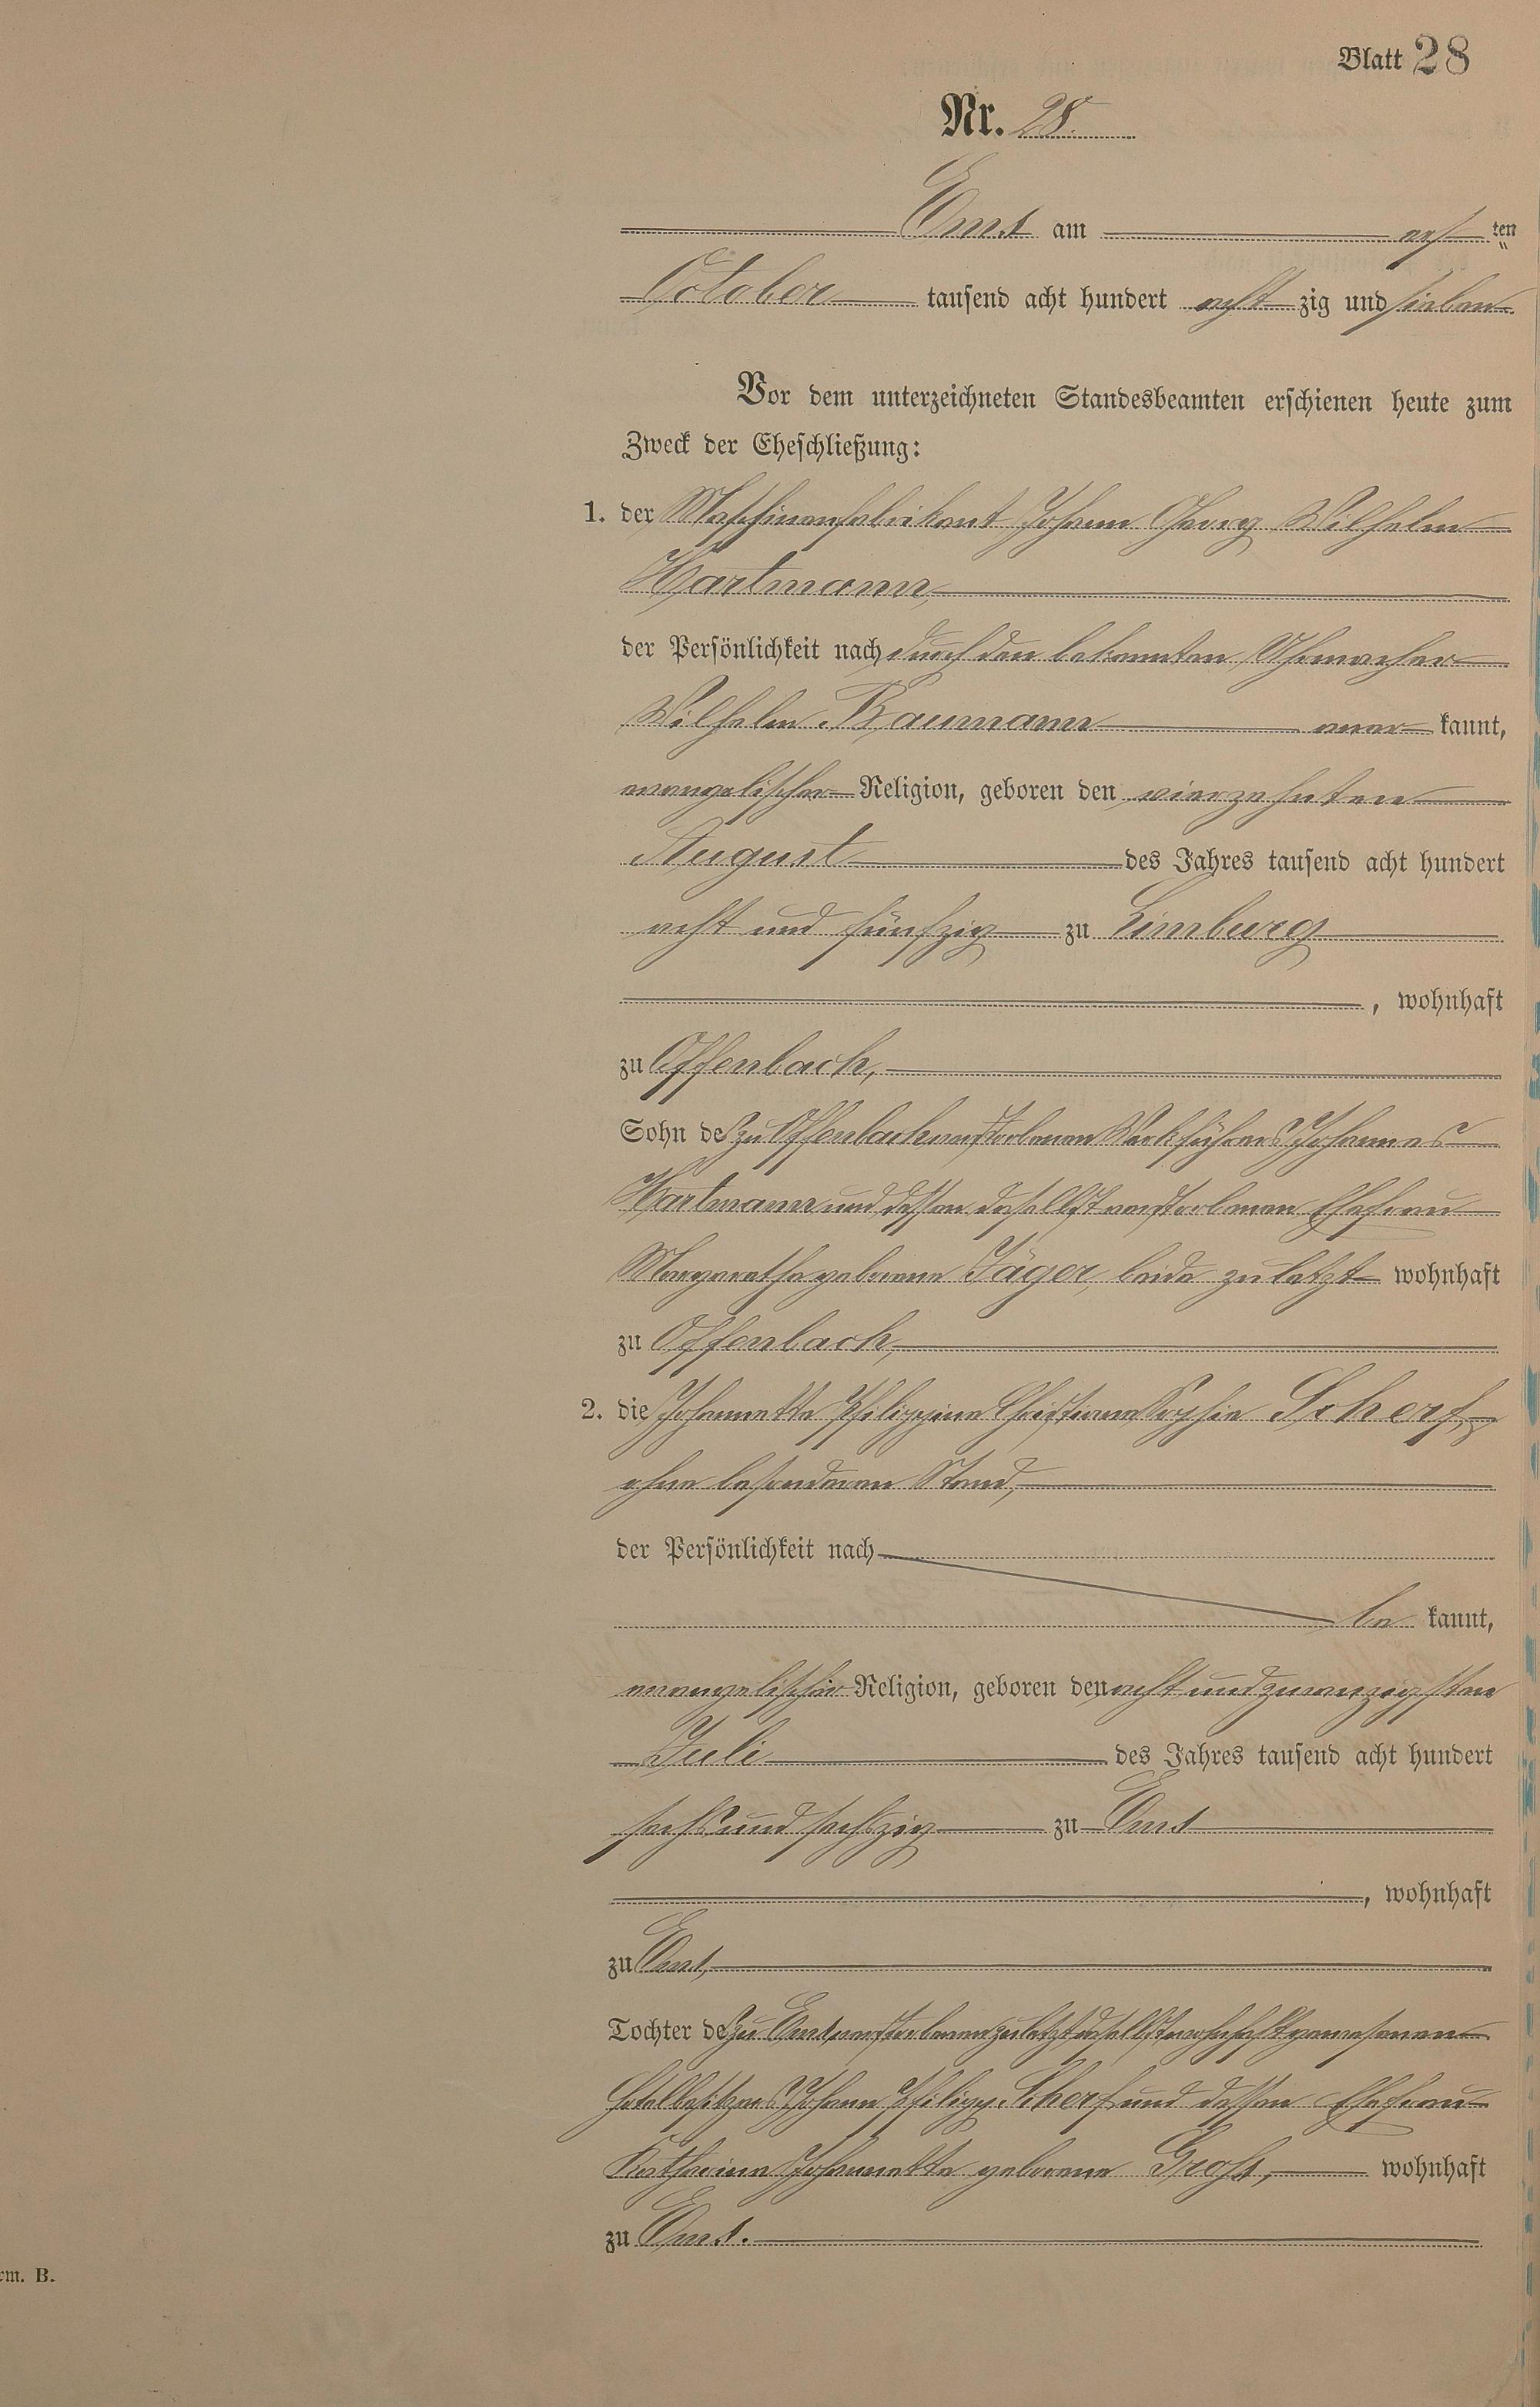 Blatt 28
Nr. 28.
Ems am acht ten
October tausend acht hundert acht zig und sieben
Vor dem unterzeichneten Standesbeamten erschienen heute zum
Zweck der Eheschließung:
1. der Maschinenfabrikant Johann Georg Wilhelm
Hartmann,
der Persönlichkeit nach durch den bekannten Uhrmacher
Wilhelm Baumann aner kannt,
evangelischer Religion, geboren den vierzehnten
August des Jahres tausend acht hundert
acht und fünfzig zu Limburg
, wohnhaft
zu Offenbach,
Sohn des zu Offenbach verstorbenen Werkführers Johannes
Hartmann und dessen daselbst verstorbenen Ehefrau
Margaretha geborene Jäger, beide zuletzt wohnhaft
zu Offenbach,
2. die Johannette Philippine Christiane Sophie Scherf,
ohne besonderen Stand,
der Persönlichkeit nach
be kannt,
evangelischer Religion, geboren den acht und zwanzigsten
Juli des Jahres tausend acht hundert
sechs und sechszig zu Ems
, wohnhaft
zu Ems,
Tochter des zu Ems verstorbenen zuletzt daselbst wohnhaft gewesenen
Hotelbesitzers Johann Philipp Scherf und dessen Ehefrau
Katharine Johannette geborene Groß, wohnhaft
zu Ems.
rm. B.